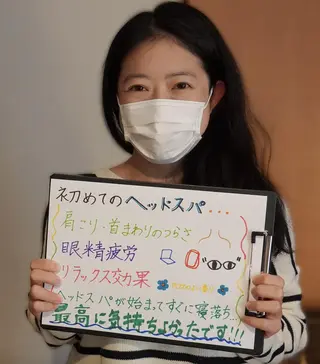 初めてのヘッドスパ・・・
肩こり・首まわりのつらさ
眼精疲労
リラックス効果
ヘッドスパが始まってすぐに寝落ち…
最高に気持ちよかったです!!!